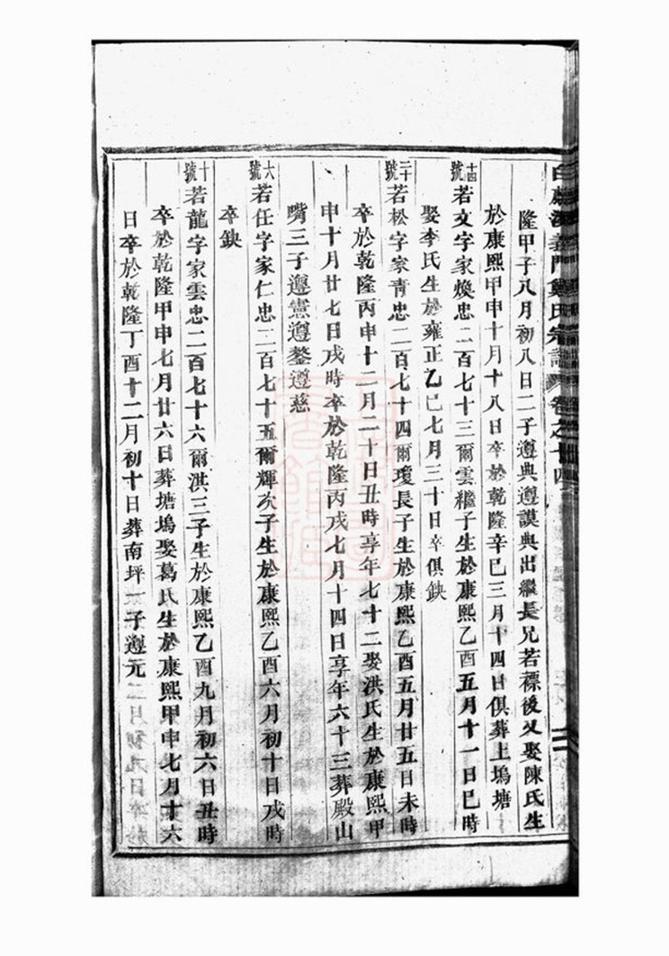 義門鄭氏宗譜 卷之十四
隆甲子八月初八日二子遵典遵謨典出繼長兄若標後又娶陳氏生
於康熙甲申十月十八日卒於乾隆辛巳三月十四日俱葬上塢塘
十四號若文字家煥忠二百七十三爾雲繼子生於康熙乙酉五月十一日巳時
娶李氏生於雍正乙巳七月三十日卒俱缺
二十號若松字家青忠二百七十四爾瓊長子生於康熙乙酉五月廿五日未時
卒於乾隆丙申十二月二十日丑時享年七十二娶洪氏生於康熙甲
申十月廿七日戌時卒於乾隆丙戌七月十四日享年六十三葬殿山
嘴三子遵憲遵鏊遵慈
六號若任字家仁忠二百七十五爾輝次子生於康熙乙酉六月初十日戌時
卒缺
十號若龍字家雲忠二百七十六爾洪三子生於康熙乙酉九月初六日丑時
卒於乾隆甲申七月廿六日葬塘塢娶葛氏生於康熙甲申七月十六
日卒於乾隆丁酉十二月初十日葬南坪一子遵元